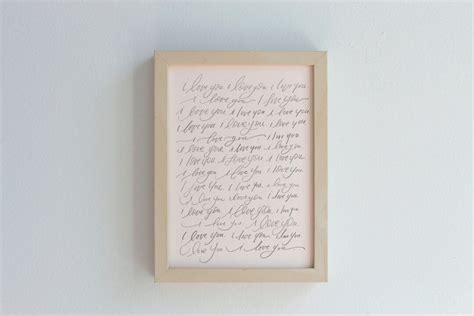 i love you i love you i love you
i love you I love you
i love you i love you i love you
i love you i love you i love you
i love you i love you
i love you i love you i love you
i love you i love you i love you
i love you i love you i love you
I love you i love you i love you
i love you i love you i love you
i love you i love you i love you
i love you I love you
I love you i love you I love you
I love you i love you